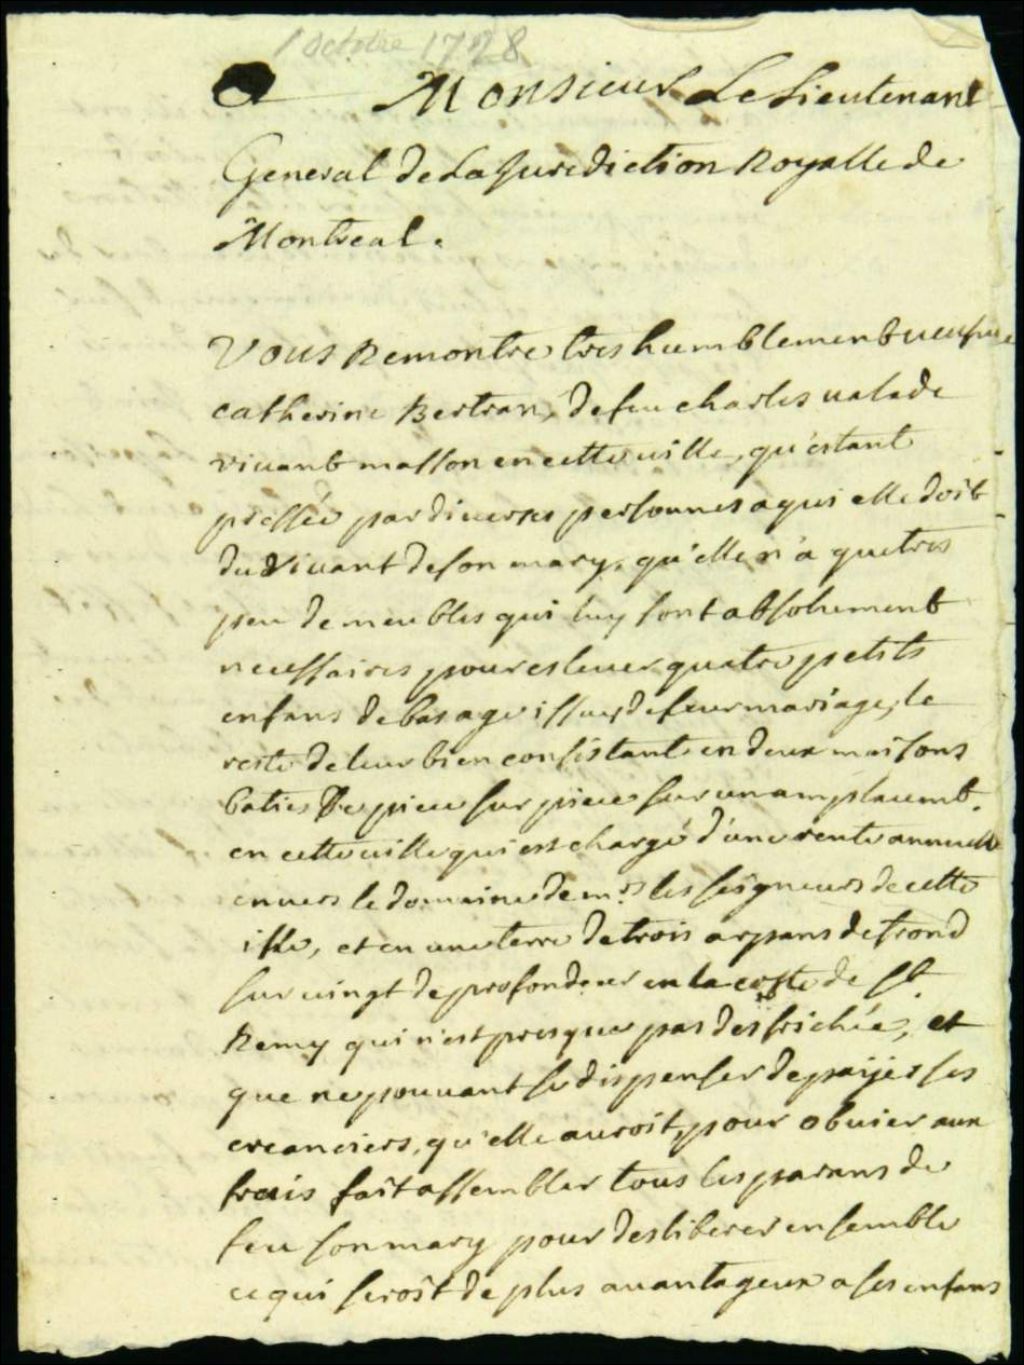 1 Octobre 1728
A Monsieur Le Lieutenant
General de La Juridiction Royalle de
Montreal.
Vous Remontre tres humblement veufve
catherine Bertran, de feu charles valade
vivant masson en cette ville, qu'estant
pressée par diverses personnes a qui elle doit
du vivant de son mary, qu'elle n'a que tres
peu de meubles qui luy sont absolument
necessaires pour eslever quatre petits
enfans de bas age issus de leur mariage, le
reste de leur bien consistant en deux maisons
baties de piece sur piece sur un amplacemt.
en cette ville qui est chargé d'une rente annuelle
envers le domaine de mrs. les seigneurs de cette
isle, et en une terre de trois arpans de frond
sur vingt de profondeur en la coste de St.
Remy qui n'est presque pas desfrichée, et
que ne pouvant se dispenser de paijer ses
creanciers, qu'elle auroit, pour obvier aux
frais fait assembler tous les parans de
feu son mary pour desliberer ensemble
ce qui seroit de plus avantageux a ses enfans